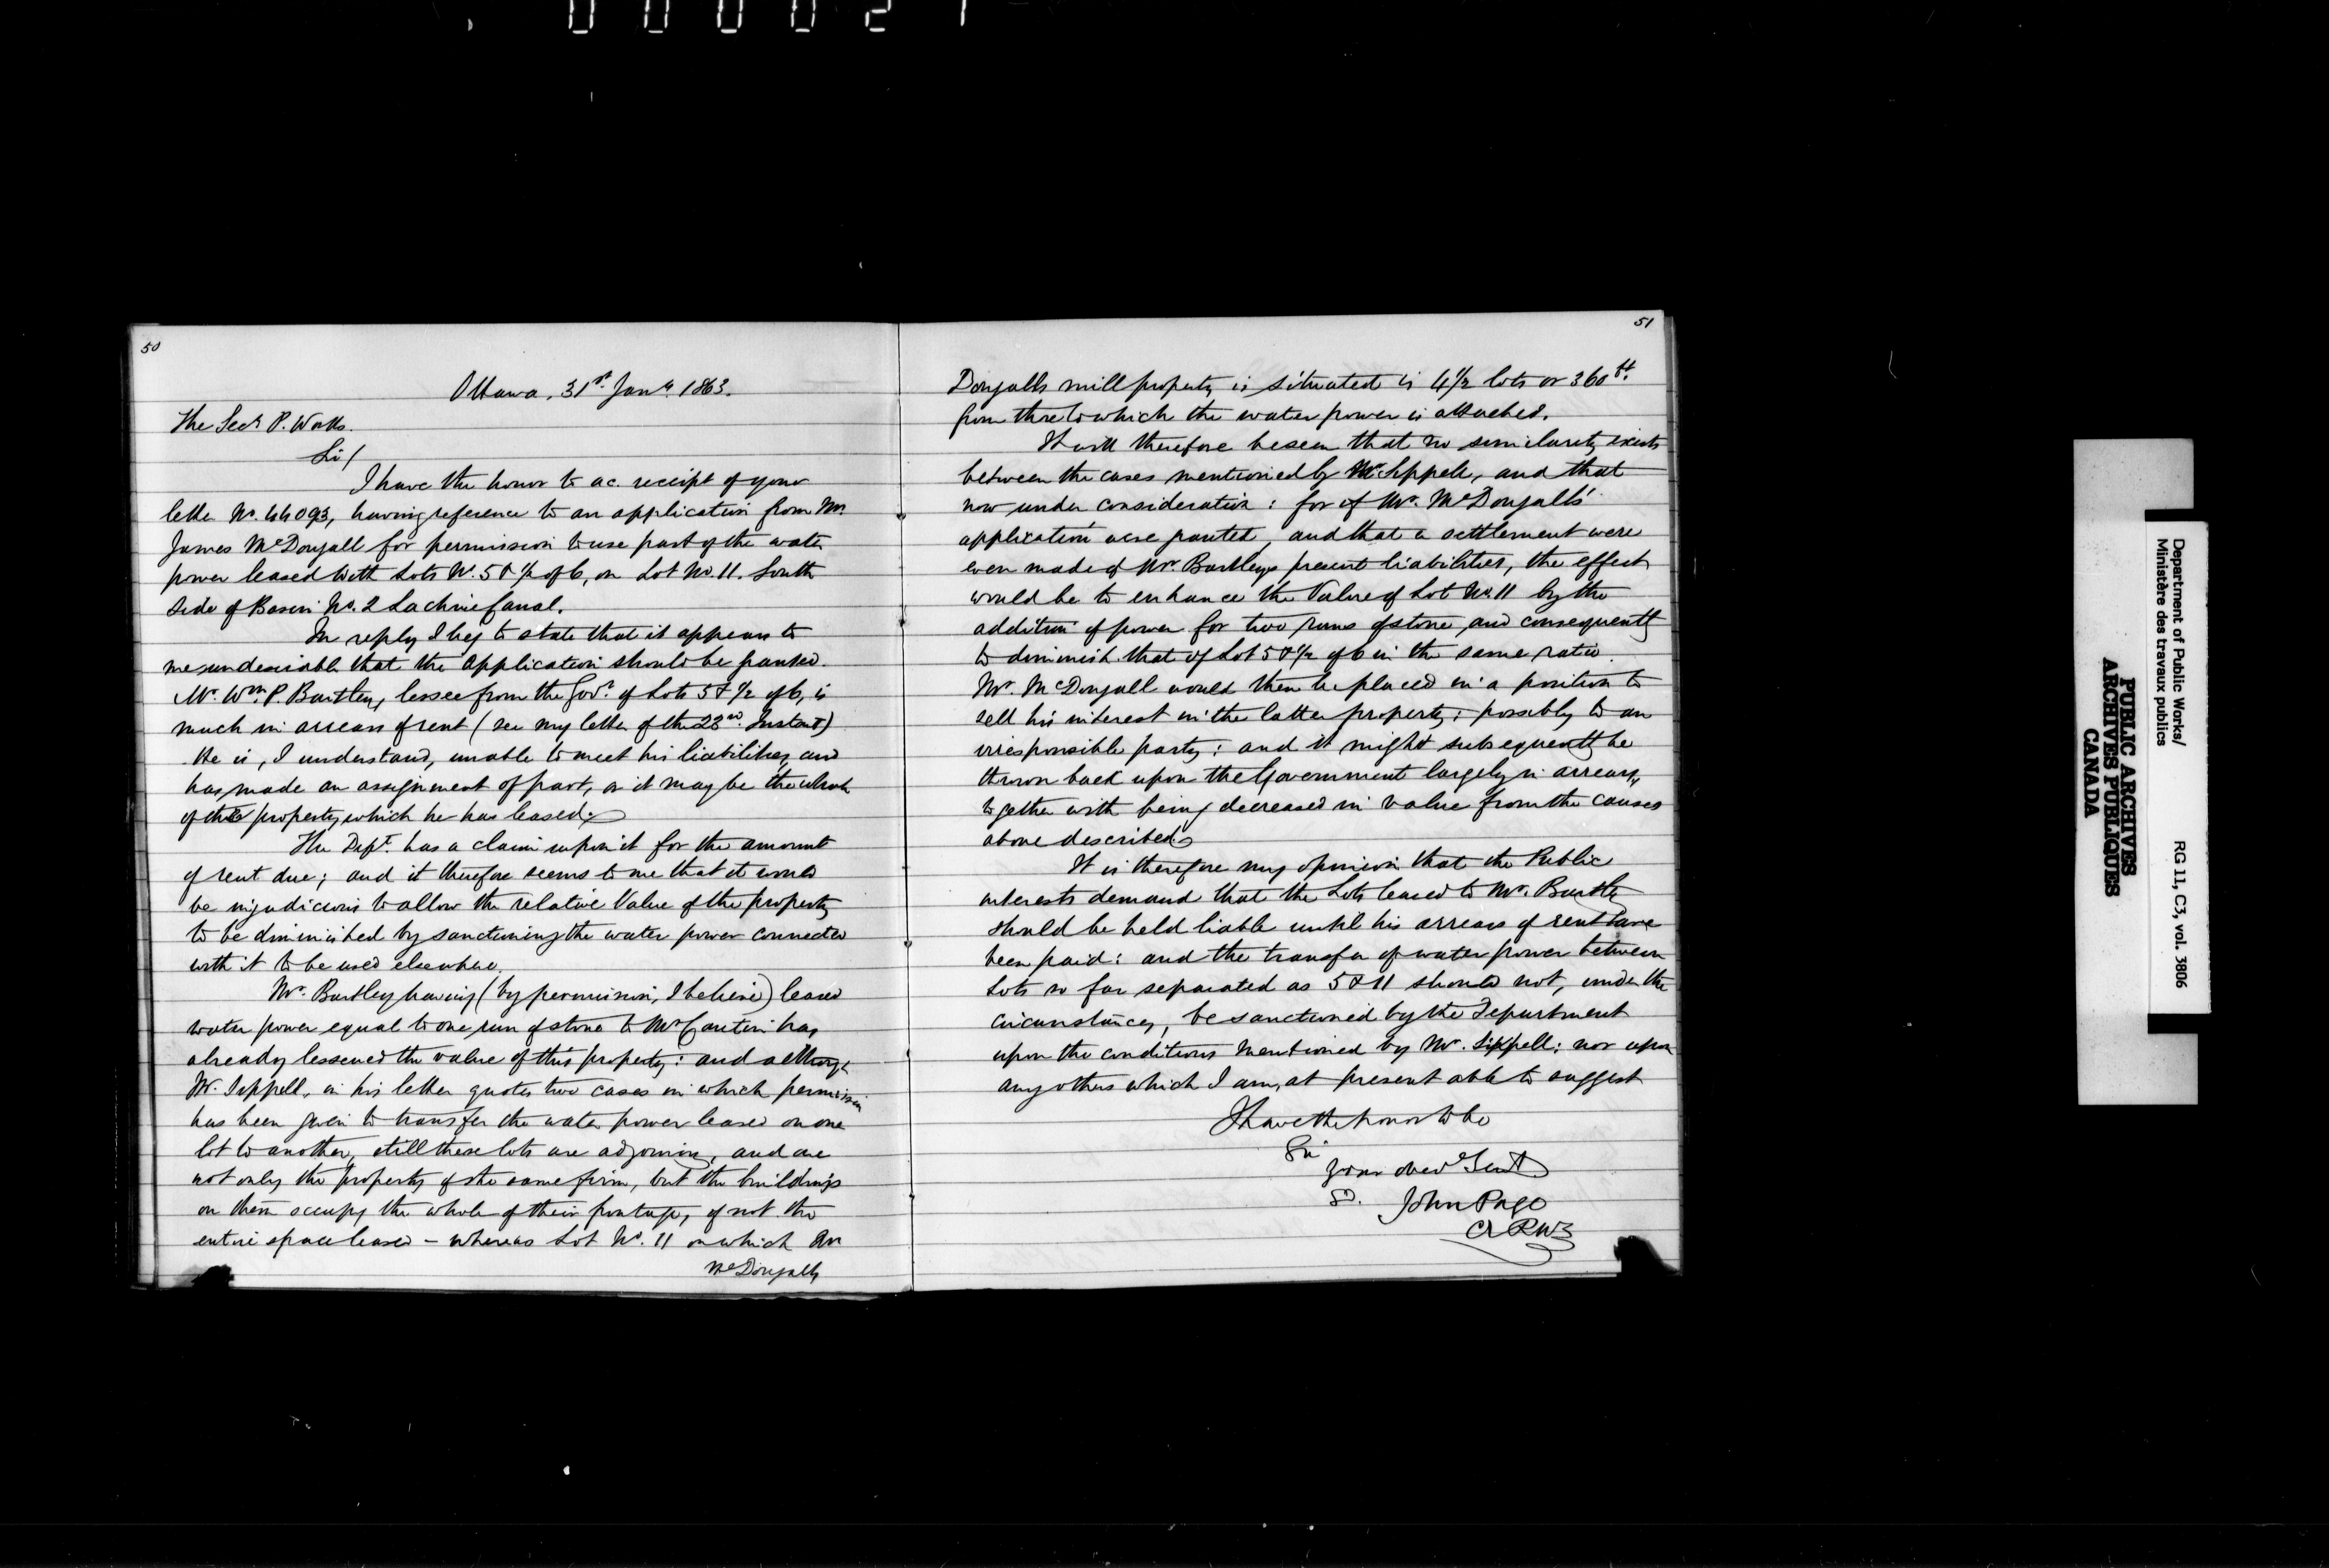 000027
50
Ottawa, 31st Jany. 1863.
The Secy. P. Works.
Sir/
I have the honor to ac. receipt of your
letter No. 44093, having reference to an application from Mr.
James McDougall for permission to use part of the water
power leased with Lots No. 5 & 1/2 of 6, on Lot No. 11. South
side of Basin No. 2 Lachine Canal.
In reply I beg to state that it appears to
me undesirable that the application should be granted.
Mr. Wm. P. Bartley, lessee from the Govt. of Lots 5 & 1/2 of 6, is
much in arrears of rent (see my letter of the 23rd. Instant)
He is, I understand, unable to meet his liabilities, and
has made an assignment of part, or it may be the whole
of the property which he has leased.
The Dept. has a claim upon it for the amount
of rent due; and it therefore seems to me that it would
be injudicious to allow the relative value of the property
to be diminished by sanctioning the water power connected
with it to be used elsewhere.
Mr. Bartley having (by permission, I believe) leased
water power equal to one run of stone to Mr. has
already lessened the value of this property: and although
Mr. Sippell, in his letter quotes two cases in which permission
has been given to transfer the water power leased on one
lot to another, still these lots are adjoining, and are
not only the property of the same firm, but the buildings
on them occupy the whole of their frontage, if not the
entire space leased – whereas Lot No. 11 on which Mr
McDougalls
51
Dougalls mill property is situated is 4 1/2 lots or 360 ft.
from those to which the water power is attached.
It will therefore be seen that no similarity exists
between the cases mentioned by Mr. Sippell, and that
now under consideration: for if Mr. McDougalls'
application were granted, and that a settlement were
even made of Mr. Bartleys present liabilities, the effect
would be to enhance the Value of Lot No. 11 by the
addition of power for two runs of stone and consequently
to diminish that of Lot 5 & 1/2 of 6 in the same ratio.
Mr. McDougall would then be placed in a position to
sell his interest in the latter property; possibly to an
irresponsible party: and it might subsequently be
thrown back upon the Government largely in arrears,
together with being decreased in value from the causes
above described.
It is therefore my opinion that the Public
interests demand that the Lots leased to Mr. Bartley
should be held liable until his arrears of rent have
been paid: and the transfer of water power between
Lots so far separated as 5 & 11 should not, under the
circumstances, be sanctioned by the Department
upon the conditions mentioned by Mr. Sippell; nor upon
any others which I am, at present able to suggest
I have the honor to be
Sir
Your obedt Servt
Sd. John Page
C E P W
Department of Public Works/
Ministère des travaux publics
RG 11, C3, vol. 3806
PUBLIC ARCHIVES
ARCHIVES PUBLIQUES
CANADA